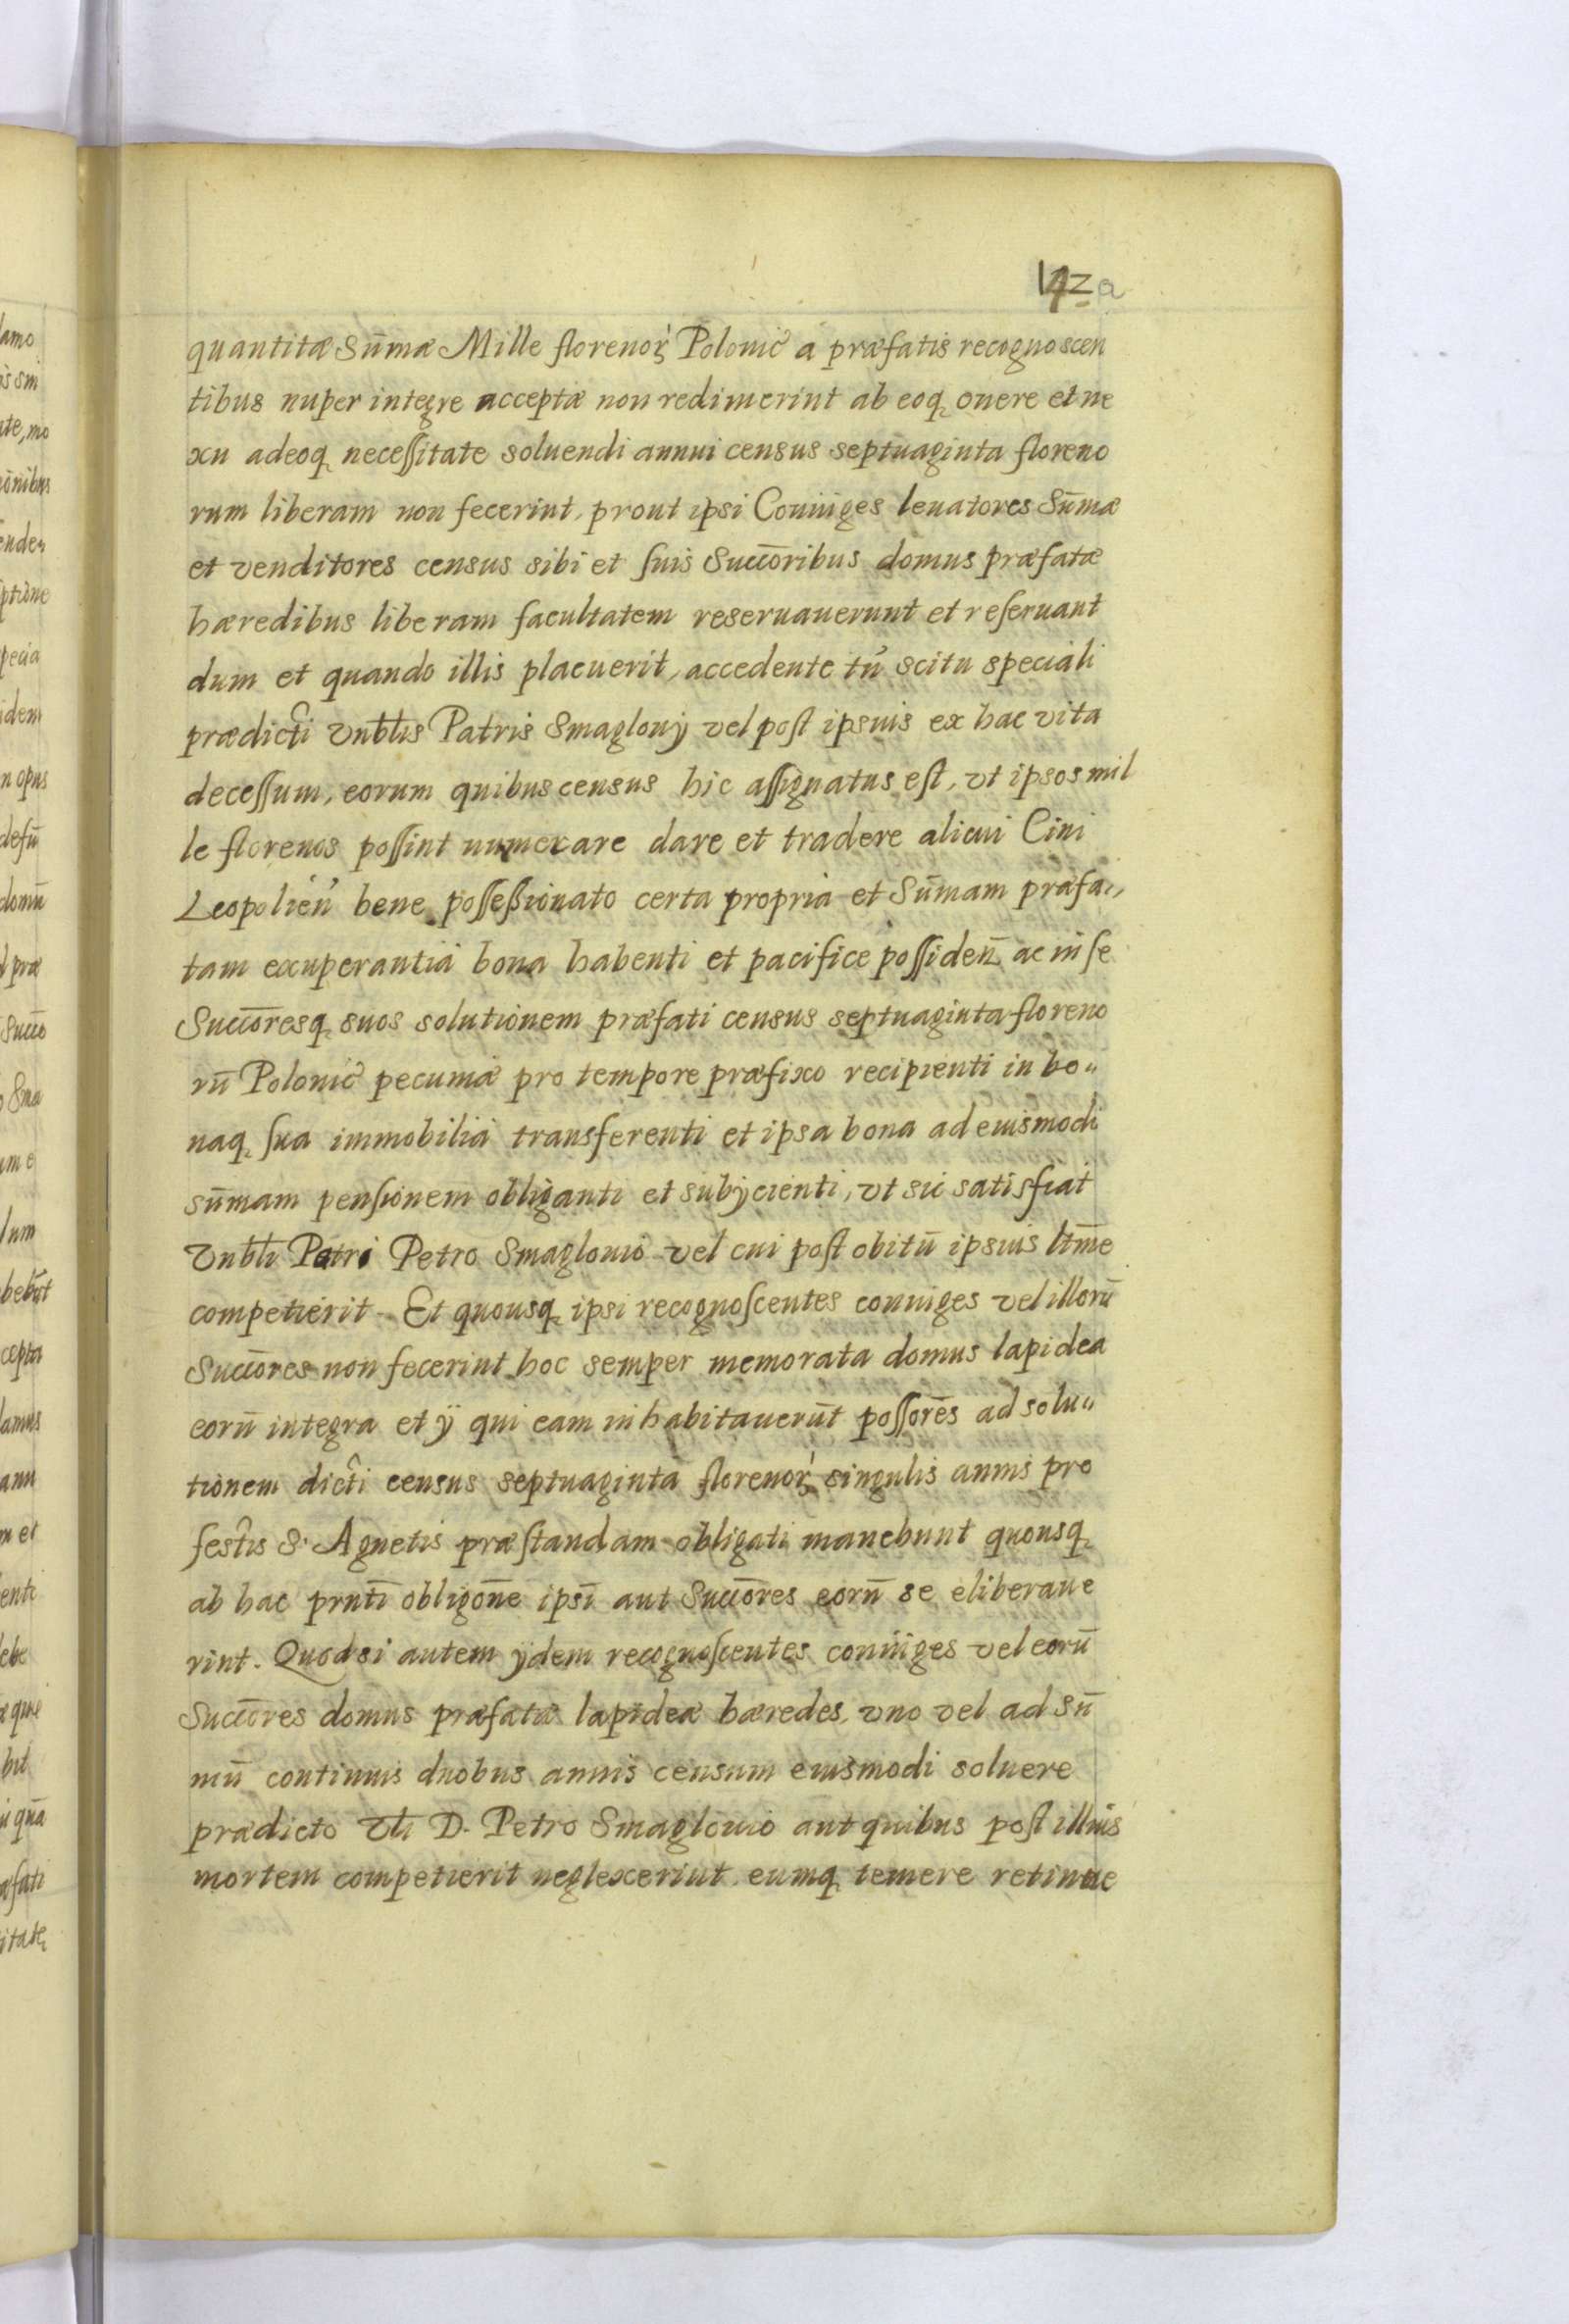 142 a
quantitæ Sum̄æ Mille florenoꝝ Polonic̃ á præfatis recognoscen
tibus nuper integre acceptæ non redimerint ab eoq̨ onere et ne
xu adeoq̨ necessitate soluendi annui census septuaginta floreno
rum liberam non fecerint, prout ipsi Coniuges leuatores Sum̄æ
et venditores census sibi et suis Succōribus domus præfatæ
hæredibus liberam facultatem reseruauerunt et reseruant
dum et quando illis placuerit, accedente tn̄ scitu speciali
prædicti Vnb̄lis Patris Smaglouÿ vel post ipsuis ex hac vita
decessum, eorum quibus census hic assignatus est, vt ipsos mil
le florenos possint numerare dare et tradere alicui Ciui
Leopolien̄ bene possessionato certa propria et Sum̄am præfa„
tam exuperantia bona habenti et pacifice possiden̄ ac in se
Succōresq̨ suos solutionem præfati census septuaginta floreno
rū Polonic̃ pecuniæ pro tempore præfixo recipienti in bo„
naq̨ sua immobilia transferenti et ipsa bona ad eiusmodi
sum̄am pensionem obliganti et subÿcienti, vt sic satisfiat
Vnb̄li Patri Petro Smaglouio vel cui post obitū ipsius lt̄ime
competierit. Et quousq̨ ipsi recognoscentes coniuges vel illorū
Succōres non fecerint hoc semper memorata domus lapidea
eorū integra et ÿ qui eam inhabitauerūt possōres ad solu„
tionem dicti census septuaginta florenoꝝ singulis annis pro
festis S. Agnetis præstandam obligati manebunt quousq̨
ab hac prn̄ti obligōne ipsi aut Succōres eorū se eliberaue
rint. Quodsi autem ÿdem recognoscentes coniuges vel eorū
Succōres domus præfatæ lapideæ hæredes, vno vel ad sū
mū continuis duobus annis censum eiusmodi soluere
prædicto Vli D. Petro Smaglouio aut quibus post illius
mortem competierit neglexerint eumq̨ temere retinue